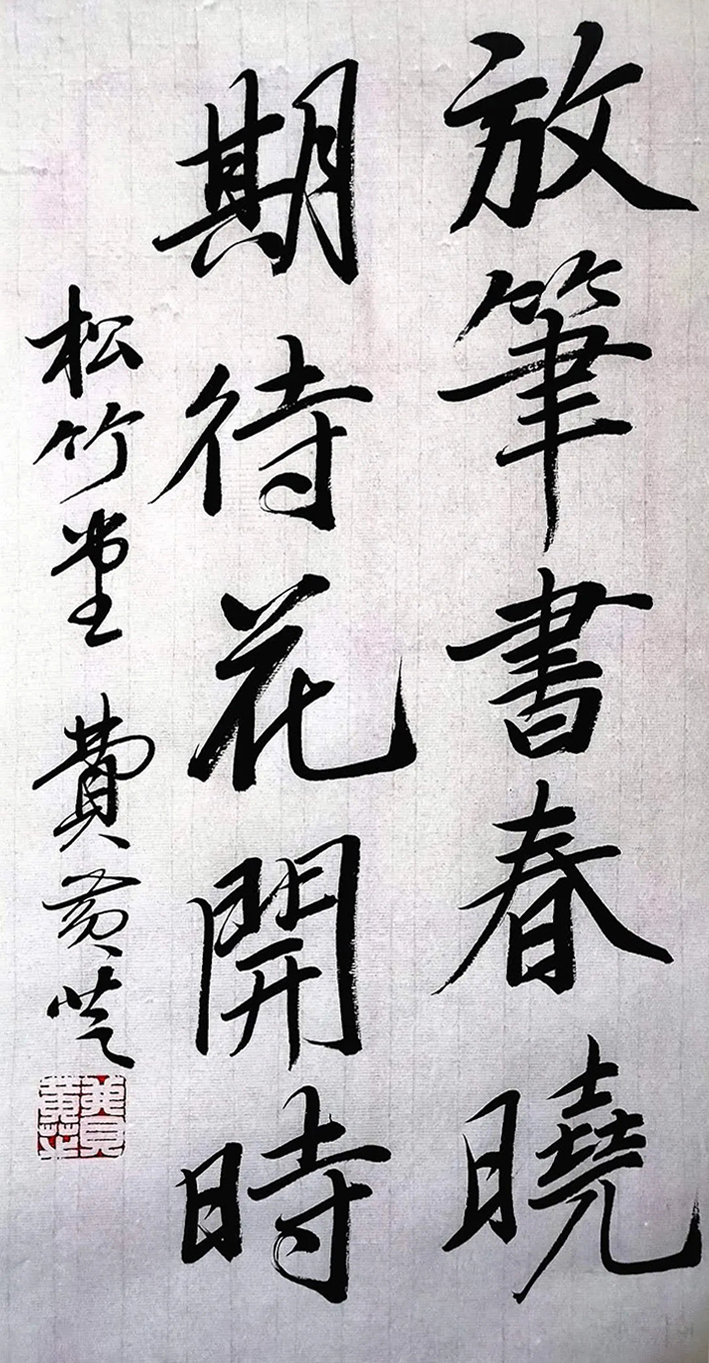 放筆書春曉
期待花開時
松竹堂 費黃芝